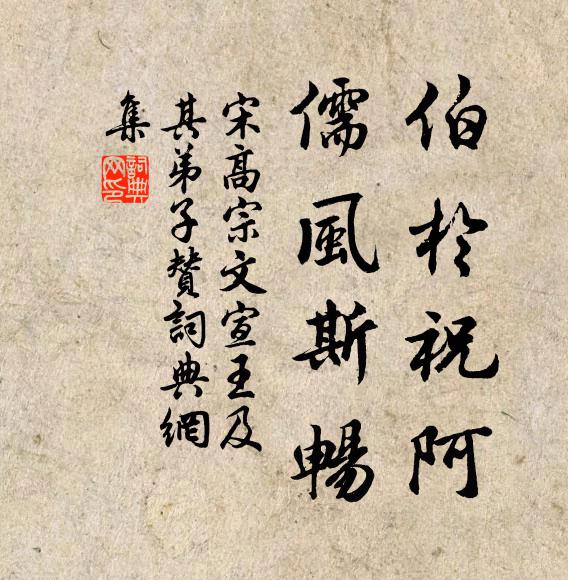 伯於祝阿
儒風斯暢
宋高宗文宣王及
其弟子贊詞典網
集
詞典網印